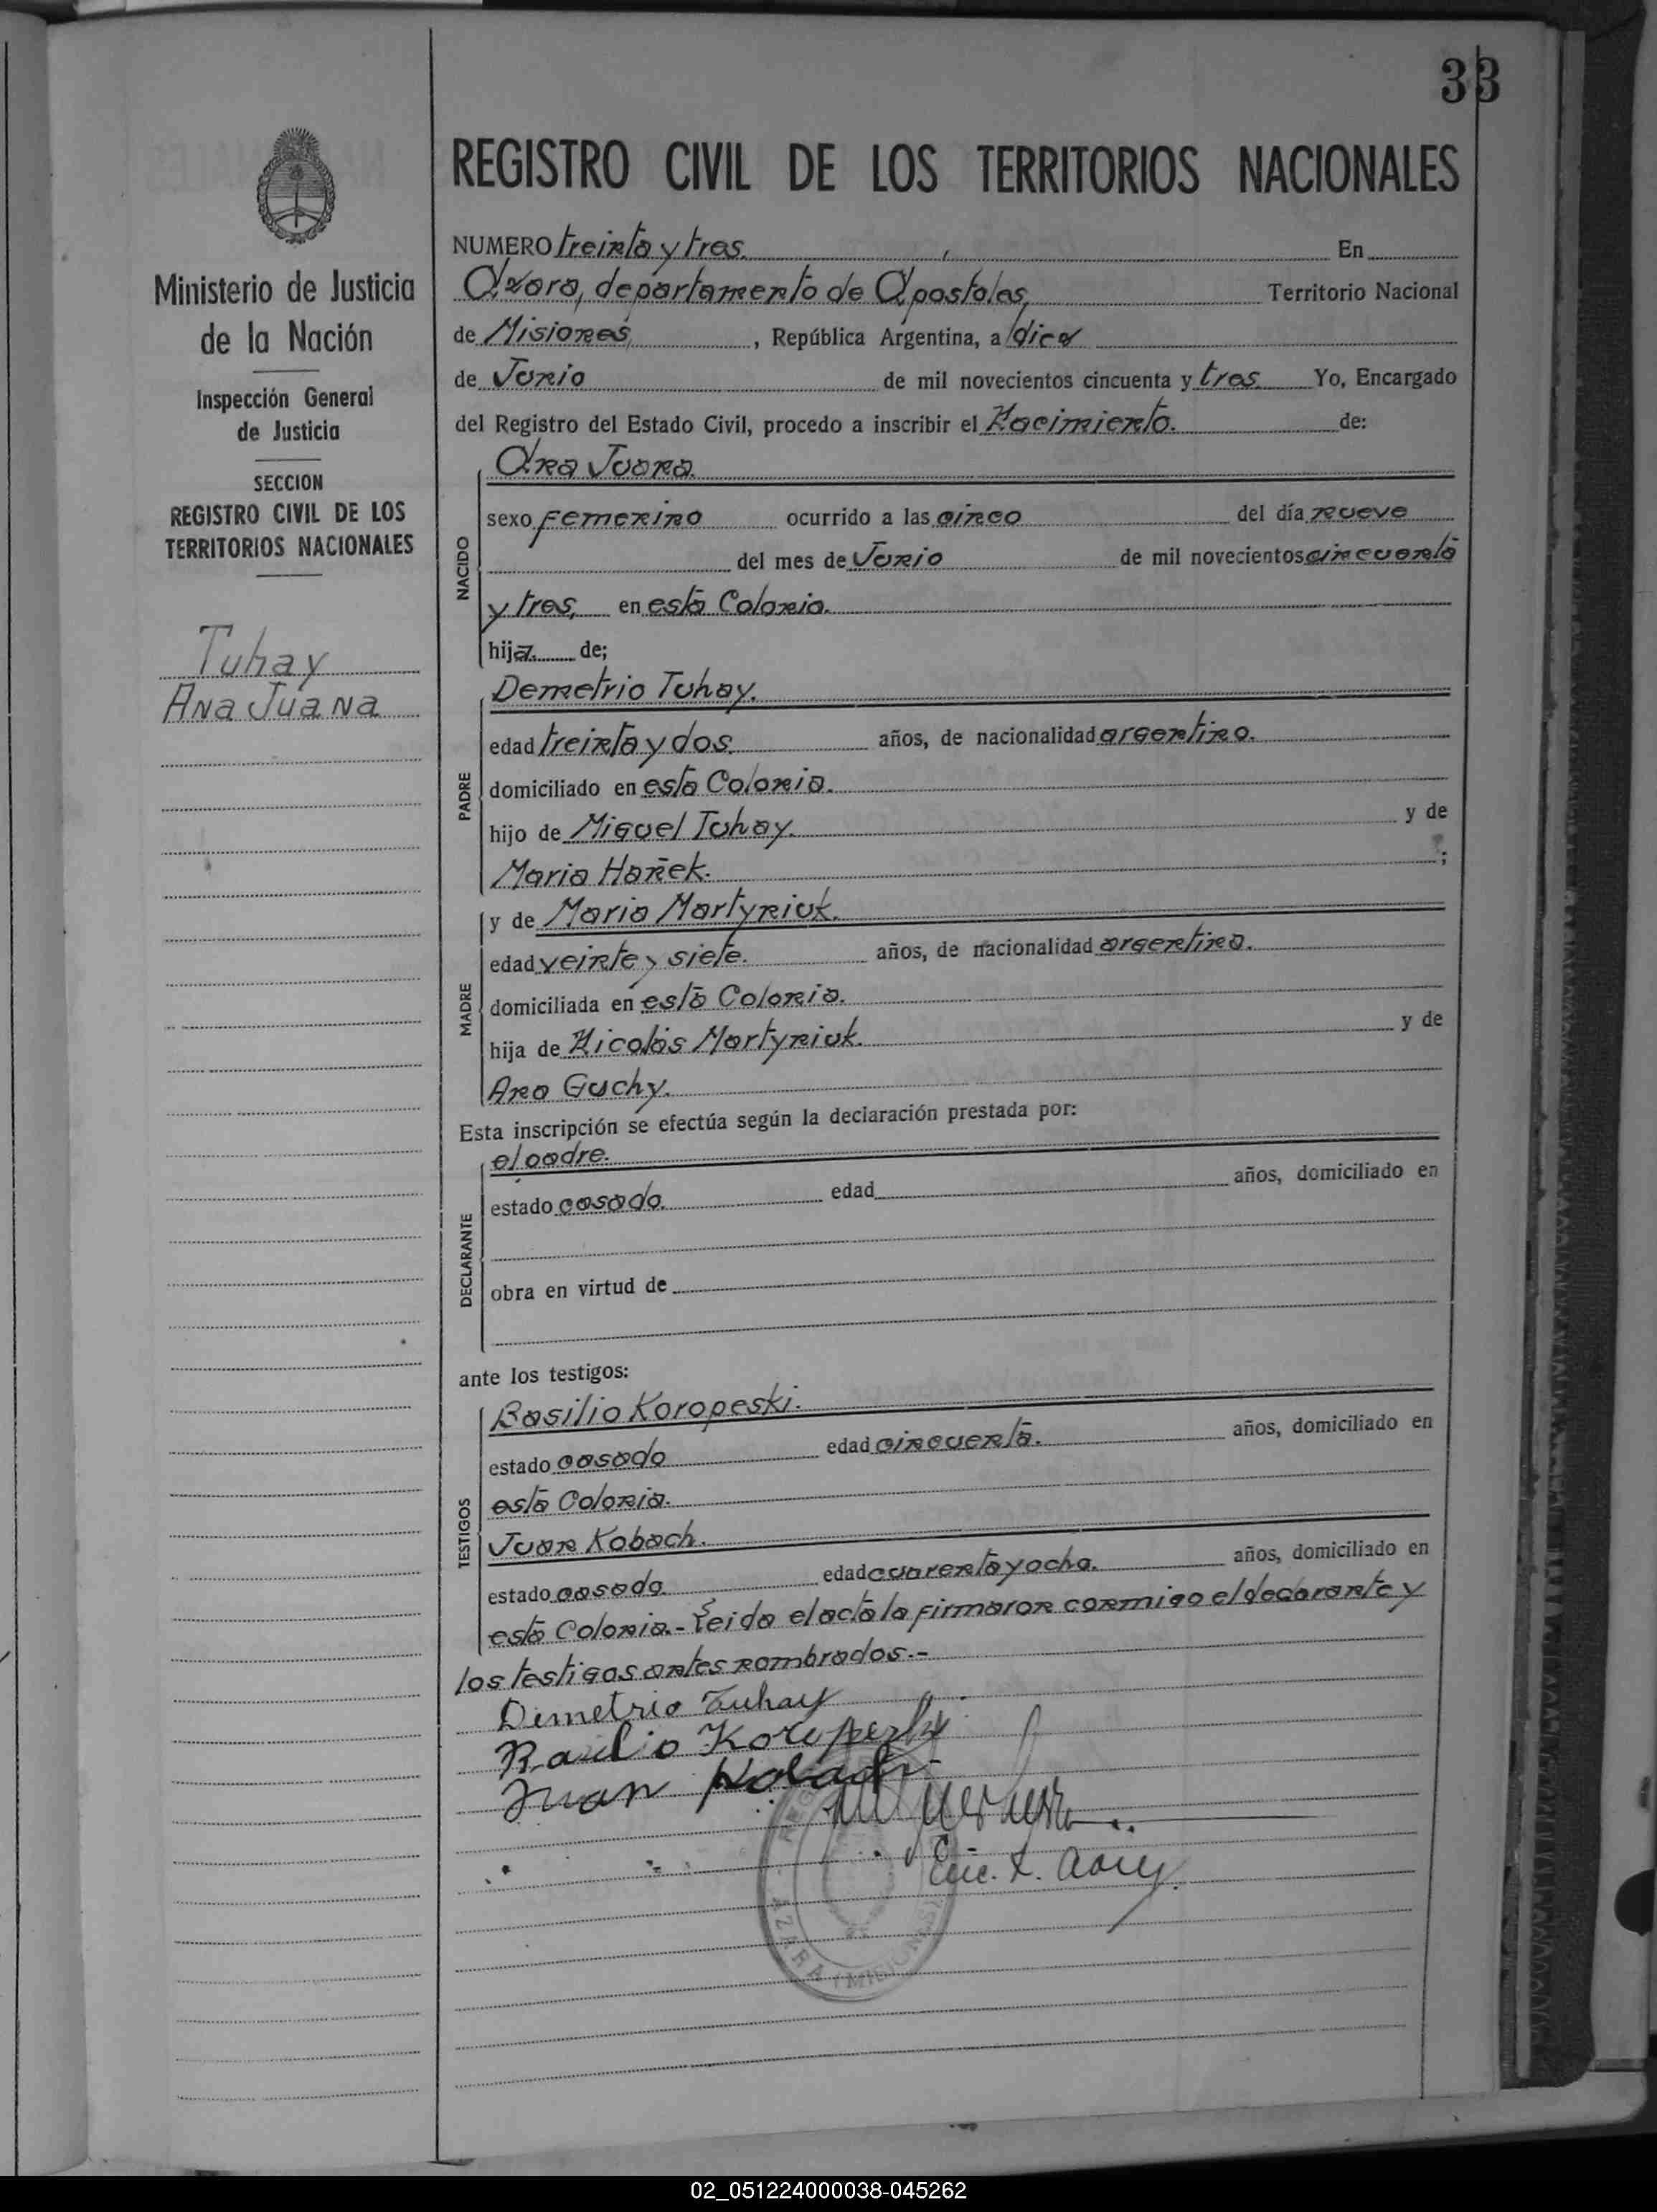 33
REGISTRO CIVIL DE LOS TERRITORIOS NACIONALES
Ministerio de Justicia
de la Nación
Inspección General
de Justicia
SECCION
REGISTRO CIVIL DE LOS
TERRITORIOS NACIONALES
Tuhay
Ana Juana
NUMERO treinta y tres. En
Azara, departamento de Apostoles, Territorio Nacional
de Misiones, , República Argentina, a diez
de Junio de mil novecientos cincuenta y tres. Yo, Encargado
del Registro del Estado Civil, procedo a inscribir el Nacimiento. de:
NACIDO
Ana Juana.
sexo femenino ocurrido a las cinco del día nueve
del mes de Junio de mil novecientos cincuenta
y tres, en esta Colonia.
hija de;
PADRE
Demetrio Tuhay.
edad treinta y dos. años, de nacionalidad argentino.
domiciliado en esta Colonia.
hijo de Miguel Tuhay. y de
Maria Hañek. ;
MADRE
y de Maria Martyniuk.
edad veinte y siete. años, de nacionalidad argentina.
domiciliada en esta Colonia.
hija de Nicolás Martyniuk. y de
Ana Guchy.
Esta inscripción se efectúa según la declaración prestada por:
DECLARANTE
el padre.
estado casado. edad años, domiciliado en
obra en virtud de
ante los testigos:
TESTIGOS
Basilio Koropeski.
estado casado edad cincuenta. años, domiciliado en
esta Colonia.
Juan Kobach.
estado casado. edad cuarenta y ocho. años, domiciliado en
esta Colonia.- Leida el acta la firmaron conmigo el declarante y
los testigos antes nombrados.-
Demetrio Tuhay
Basilio Koropeski
Juan Kobach
Enc.
AZARA (MISIONES)
02_051224000038-045262